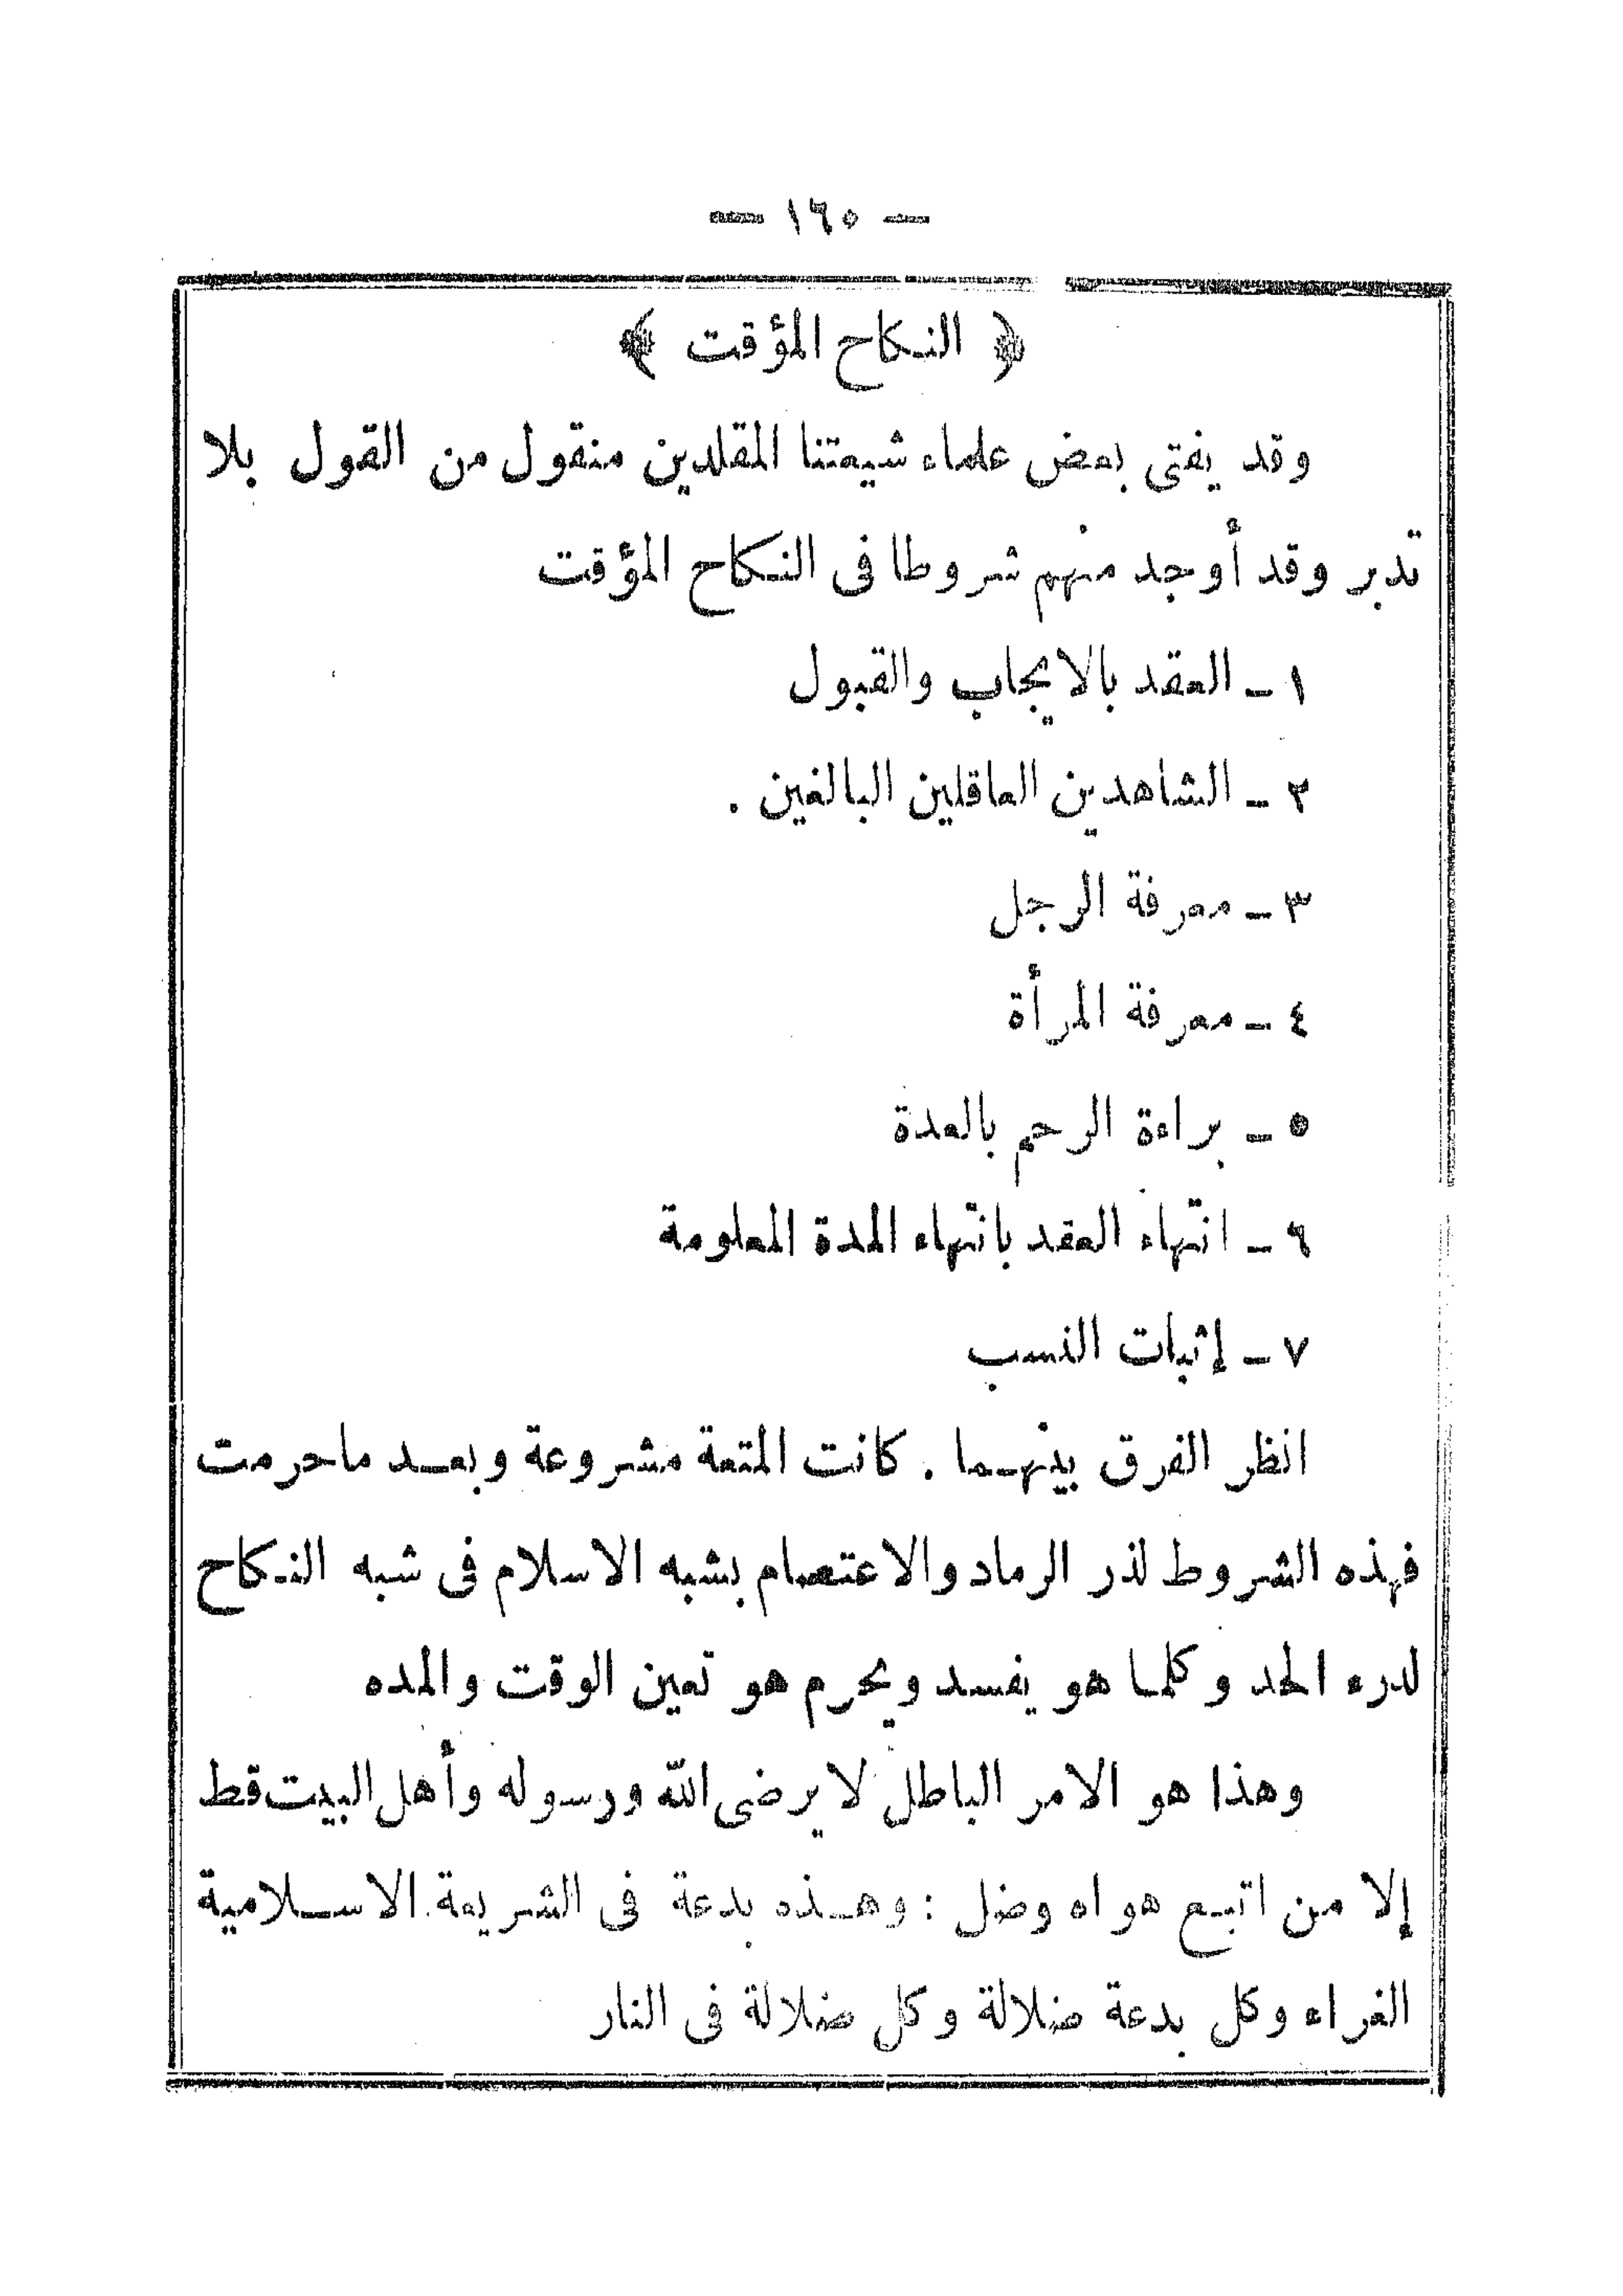 — ١٦٥ —
﴿ النكاح المؤقت ﴾
وقد يفتى بعض علماء شيعتنا المقلدين منقول من القول بلا
تدبر وقد أوجد منهم شروطا فى النكاح المؤقت
١ ـ العقد بالايجاب والقبول
٢ ـ الشاهدين العاقلين البالغين .
٣ ـ معرفة الرجل
٤ ـ معرفة المرأة
٥ ـ براءة الرحم بالعدة
٦ ـ انتهاء العقد بانتهاء المدة المعلومة
٧ ـ إثبات النسب
انظر الفرق بينهما . كانت المتعة مشروعة وبعد ماحرمت
فهذه الشروط لذر الرماد والاعتصام بشبه الاسلام فى شبه النكاح
لدرء الحد وكلما هو يفسد ويحرم هو تعين الوقت والمده
وهذا هو الامر الباطل لا يرضى الله ورسوله وأهل البيت قط
إلا من اتبع هواه وضل : وهذه بدعة فى الشريعة الاسلامية
الغراء وكل بدعة ضلالة وكل ضلالة فى النار